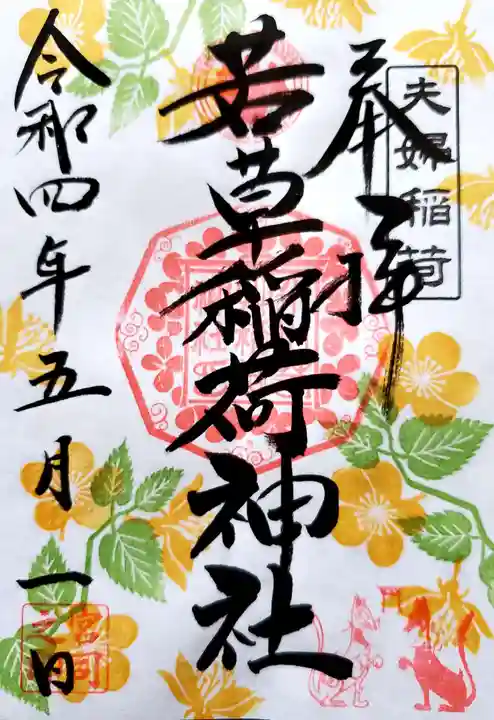 夫婦稲荷
奉拝
若草稲荷神社
令和四年五月一日
宮司之印